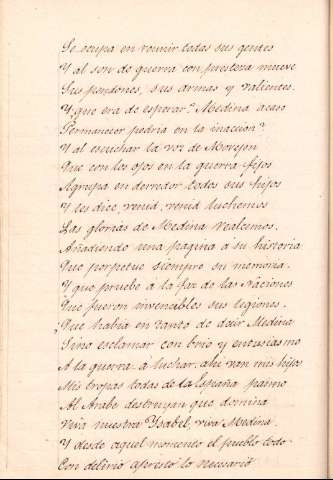 Se ocupa en reunir todos sus gentes
Y al son de guerra con presteza mueve
Sus pendones, sus armas y valientes.
Y que era de esperar? Medina acaso
Permanecer podria en la inaccion?
Y al escuchar la voz de Morejon
Que con los ojos en la guerra fijos
Agrupa en derredor todos sus hijos
Y les dice, venid, venid luchemos
Las glorias de Medina realcemos.
Añadiendo una pagina á su historia
Que perpetue siempre su memoria.
Y que pruebe á la faz de las Naciones
Que fueron invencibles sus legiones.
Que habia en tanto de decir Medina
Sino esclamar con brio y entusiasmo
A la guerra, á luchar, ahi van mis hijos
Mis tropas todas de la España pasmo
Al Arabe destruyan que domina
Viva nuestra Ysabel, viva Medina.
Y desde aquel momento el pueblo todo
Con delirio aprestó lo necesario